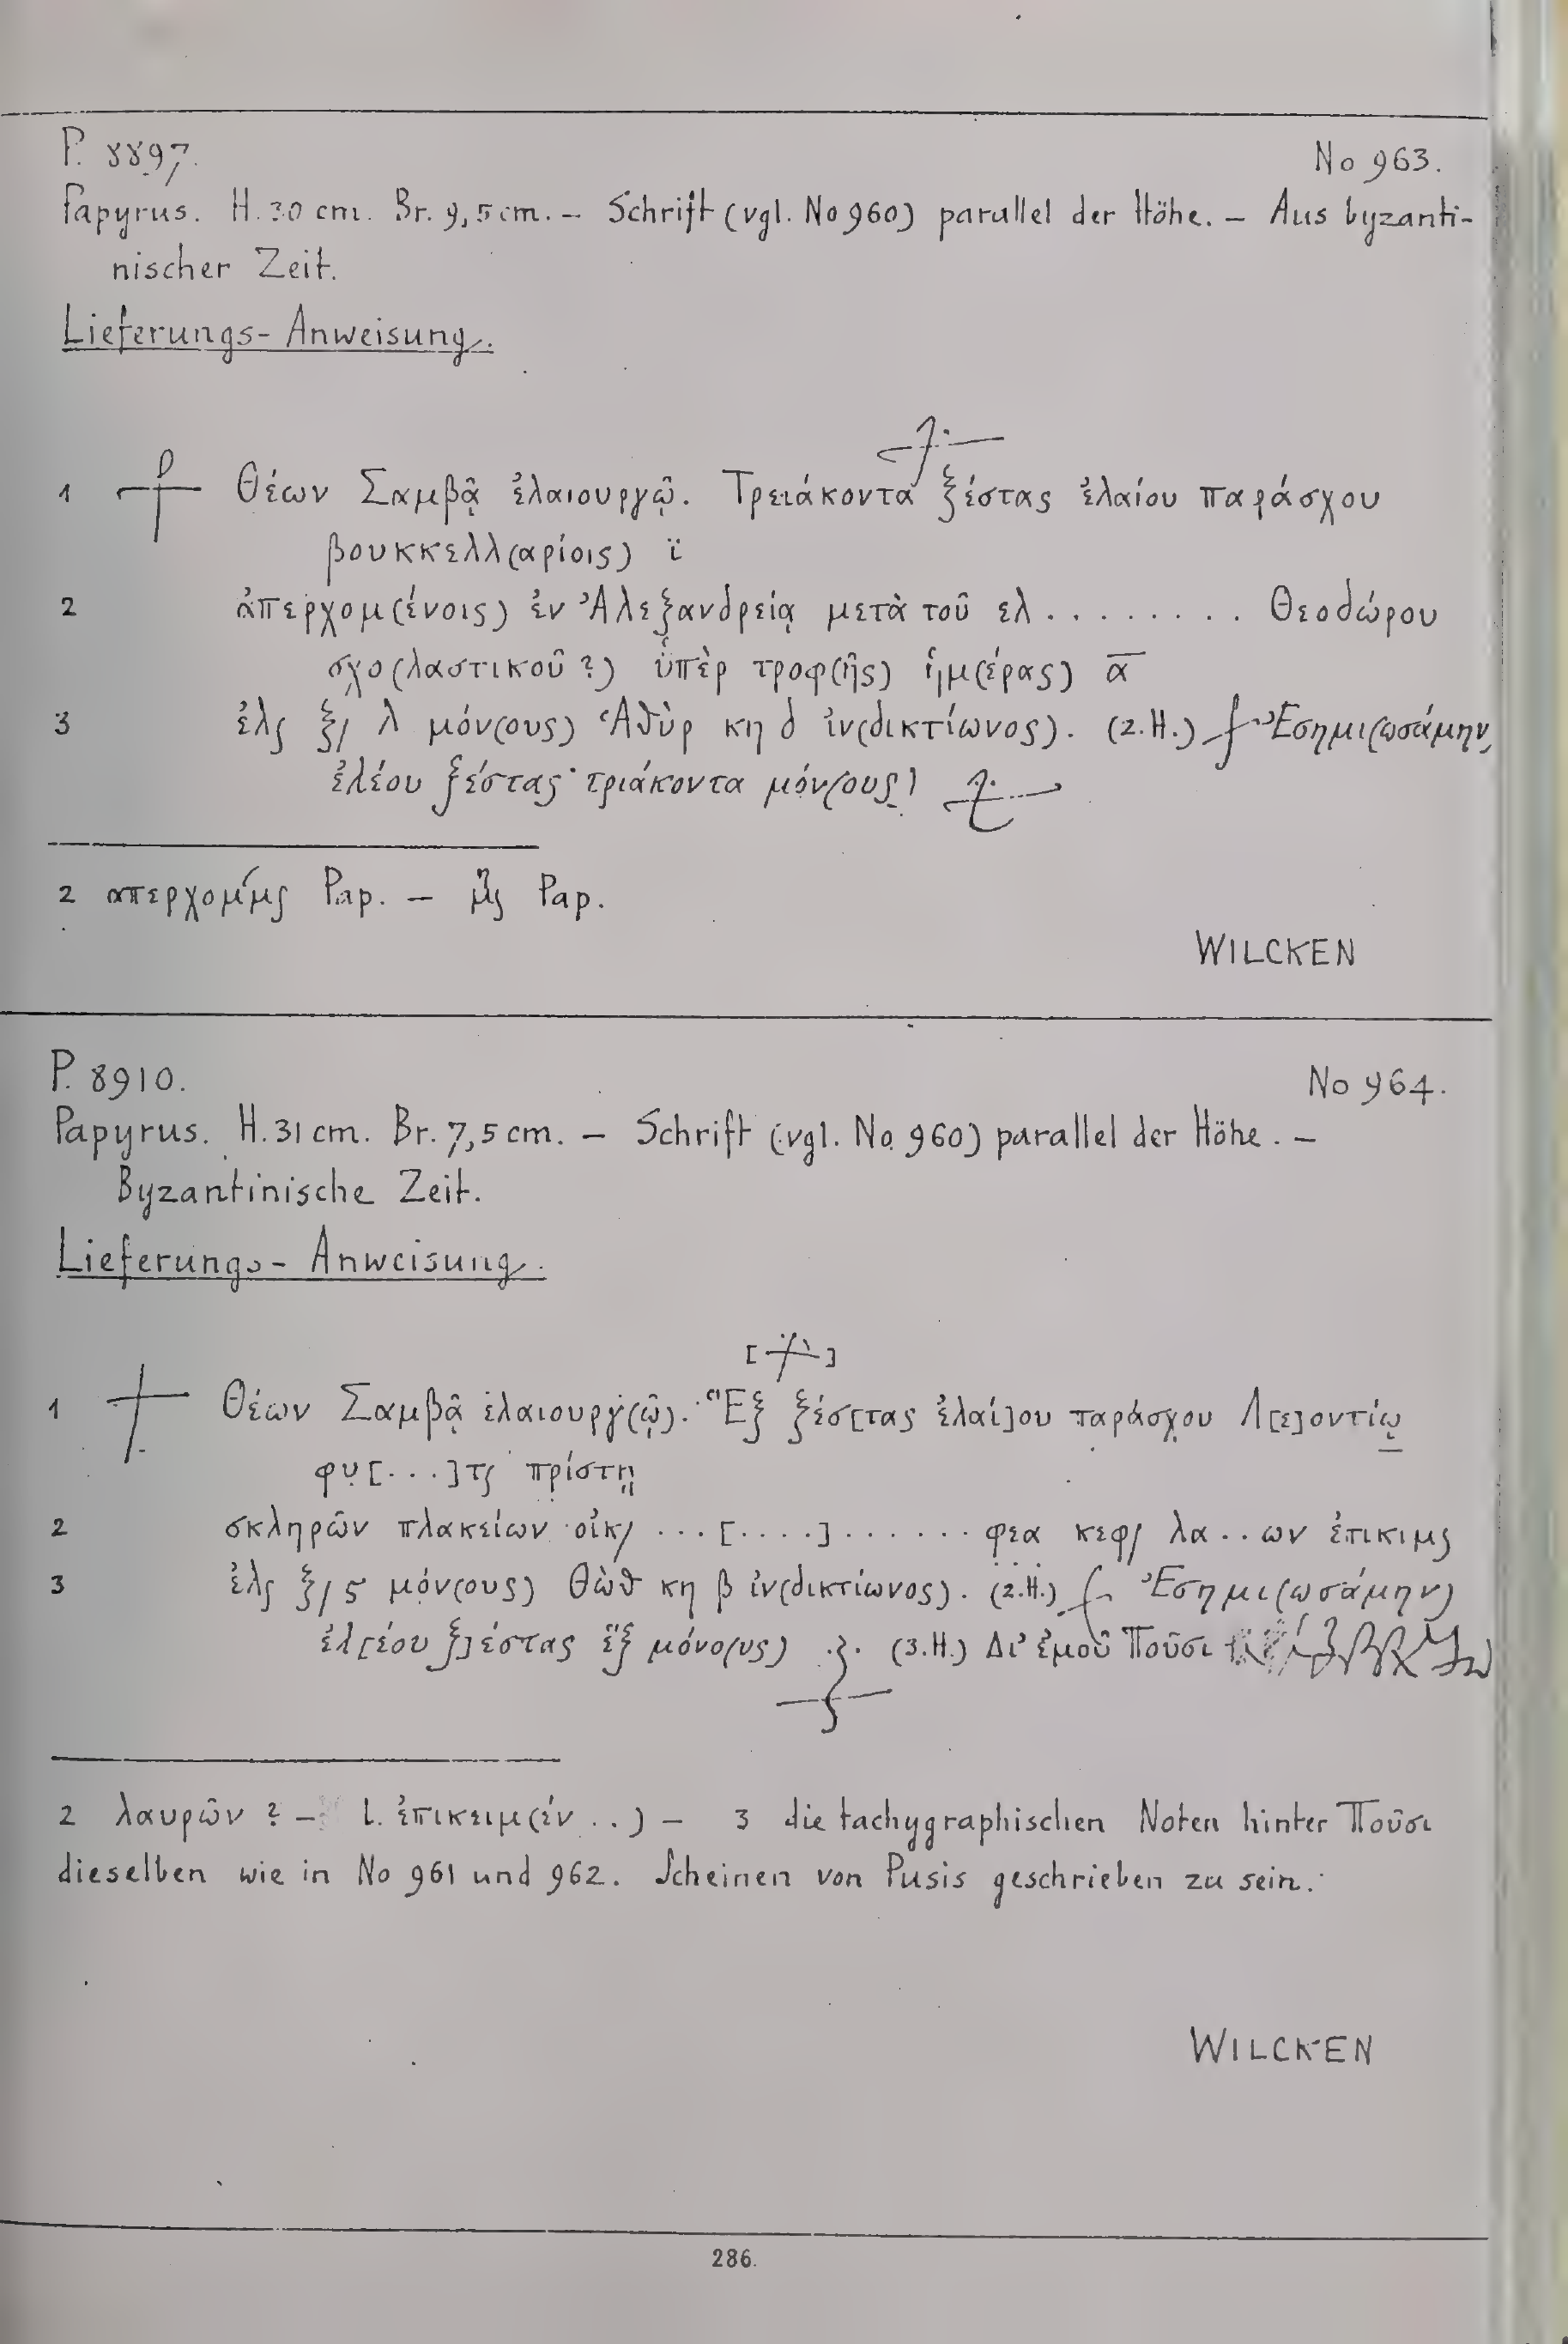 P. 8897. No 963.
Papyrus. H. 30 cm. Br. 9,5 cm. – Schrift (vgl. No 960) parallel der Höhe. – Aus byzanti-
nischer Zeit.
Lieferungs-Anweisung.
1 ⳨ Θέων Σαμβᾷ ἐλαιουργῷ. Τρειάκοντα ξέστας ἐλαίου παράσχου
βουκκελλ(αρίοις) ϊ
2 ἀπερχομ(ένοις) ἐν Ἀλεξανδρείᾳ μετὰ τοῦ ελ ........ Θεοδώρου
σχο(λαστικοῦ?) ὑπὲρ τροφ(ῆς) ἡμ(έρας) α̅
3 ἐλς ξ/ λ μόν(ους) Ἁθὺρ κη δ ἰν(δικτίωνος). (2.H.) Ἐσημι(ωσάμην)
ἐλέου ξέστας τριάκοντα μόν(ους)
2 απερχομμς Pap. – Pap.
WILCKEN
P. 8910. No 964.
Papyrus. H. 31 cm. Br. 7,5 cm. – Schrift (vgl. No 960) parallel der Höhe. –
Byzantinische Zeit.
Lieferungs-Anweisung.
1 Θέων Σαμβᾷ ἐλαιουργ(ῷ). Ἓξ ξέσ[τας ἐλαί]ου παράσχου Λ[ε]οντίῳ
φυ[...]τς πρίστῃ
2 σκληρῶν πλακείων οἰκ/ ...[....]...... φεα κεφ/ λα..ων ἐπικιμς
3 ἐλς ξ/ ϛ μόν(ους) Θὼθ κη β ἰν(δικτίωνος). (2.H.) Ἐσημι(ωσάμην)
ἐλ[έου ξ]έστας ἓξ μόνο(υς) (3.H.) Δι’ ἐμοῦ Ποῦσι
2 λαυρῶν? – l. ἐπικειμ(έν..) – 3 die tachygraphischen Noten hinter Ποῦσι
dieselben wie in No 961 und 962. Scheinen von Pusis geschrieben zu sein.
WILCKEN
286.